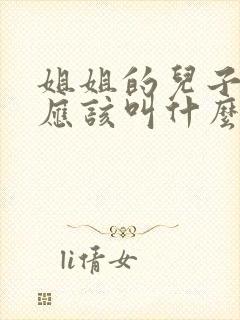 姐姐的兒子
應該叫什麼
li倩女